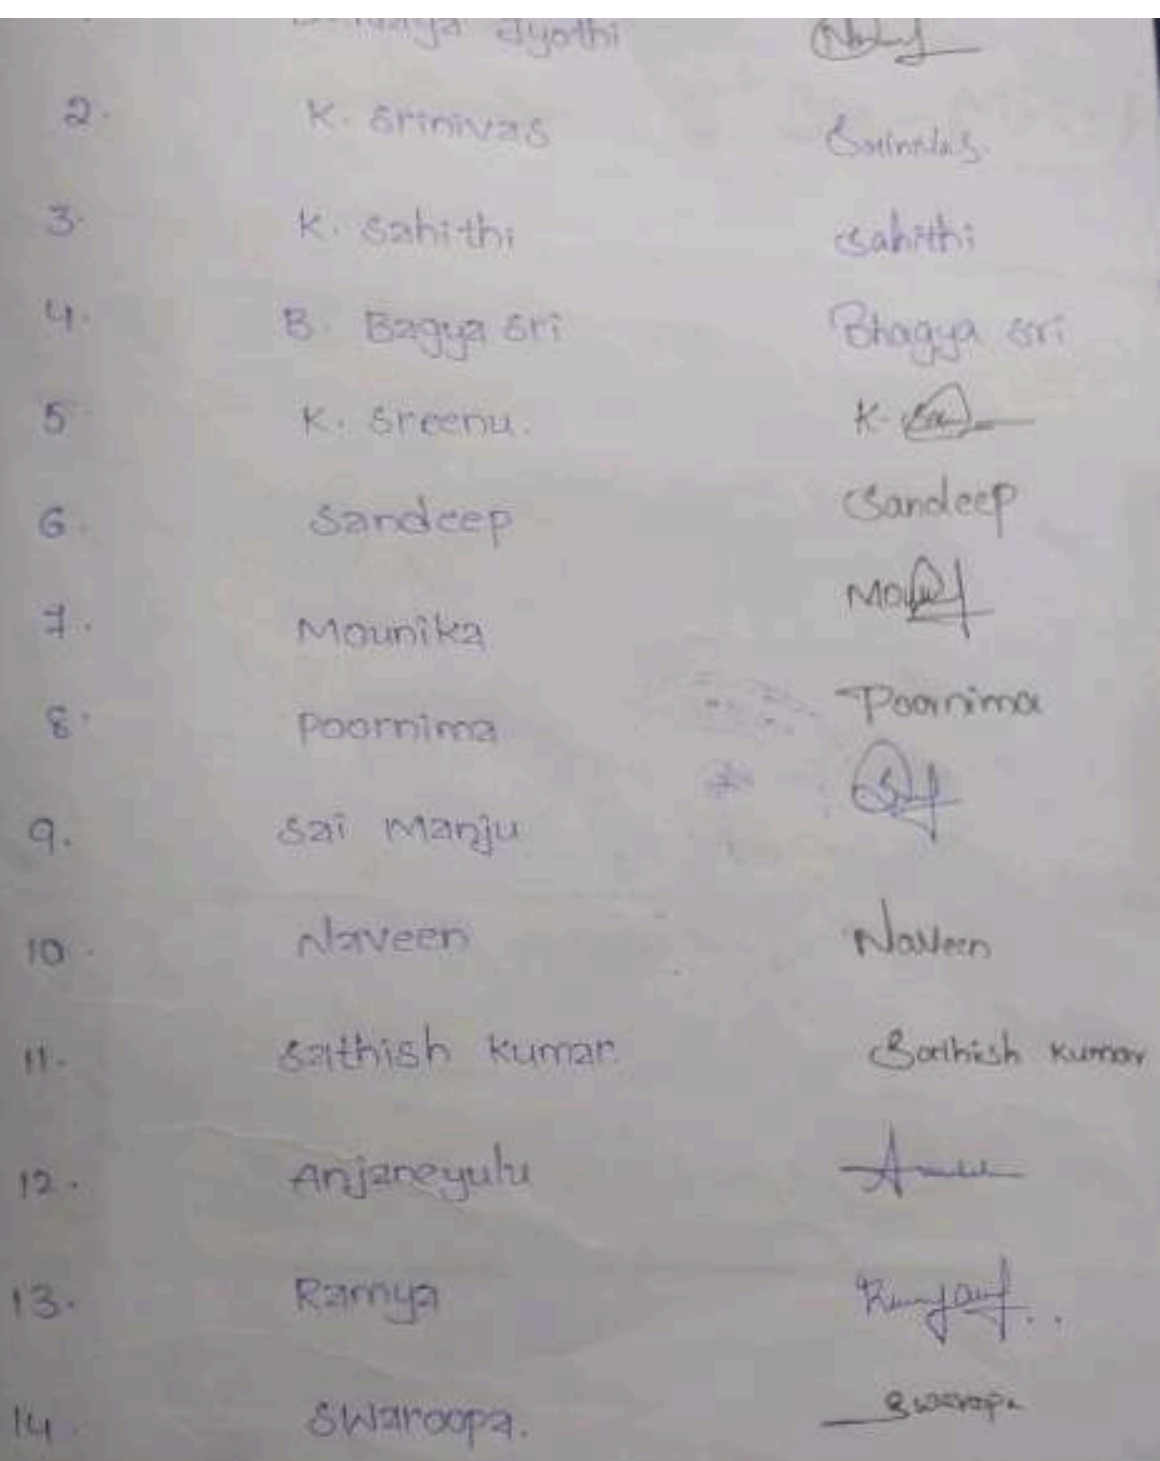 Jyothi
2. K. Srinivas Srinivas.
3. K. Sahithi Sahithi
4. B. Bagya Sri Bhagya Sri
5 K. Sreenu. K.
6. Sandeep Sandeep
7. Mounika
8. Poornima Poornima
9. Sai Manju
10. Naveen Naveen
11. Sathish Kumar. Sathish Kumar
12. Anjaneyulu
13. Ramya
14. Swaroopa. Swaroopa